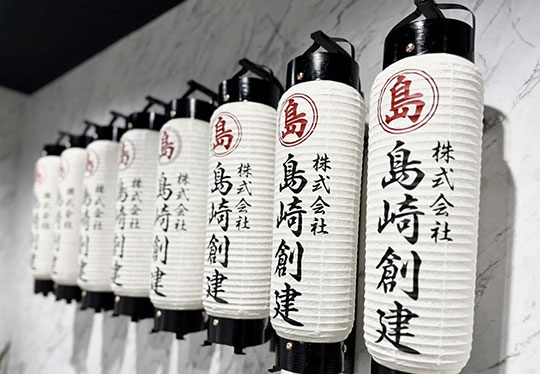 島
株式会社
島崎創建
島
株式会社
島崎創建
島
株式会社
島崎創建
島
株式会社
島崎創建
島
株式会社
島崎創建
島
株式会社
島崎創建